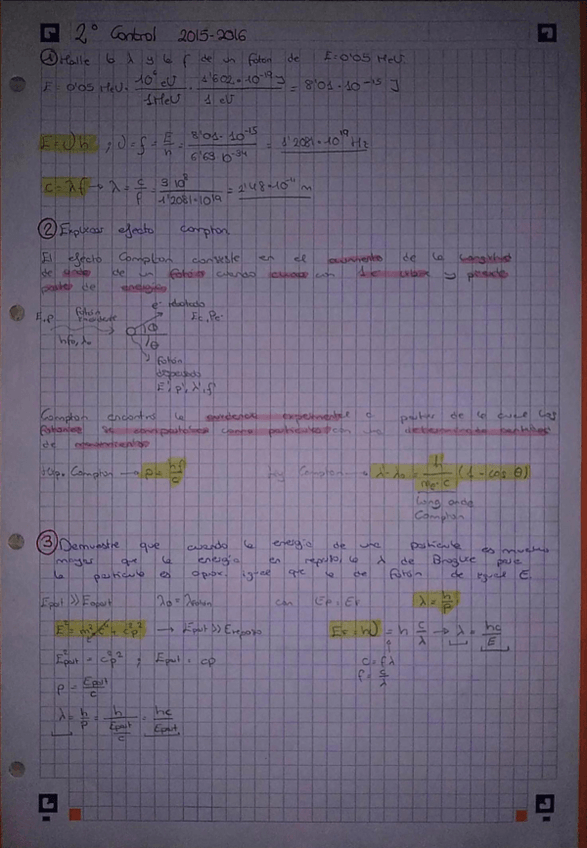 2° Control 2015-2016
① Halle la λ y la f de un foton de E=0'05 MeV.
E = 0'05 MeV · 10⁶ eV / 1 MeV · 1'602 · 10⁻¹⁹ J / 1 eV = 8'01 · 10⁻¹⁵ J
E = ν h ; ν = f = E / h = 8'01 · 10⁻¹⁵ / 6'63 10⁻³⁴ = 1'2081 · 10¹⁹ Hz
c = λ f → λ = c / f = 3 10⁸ / 1'2081 · 10¹⁹ = 2'48 · 10⁻¹¹ m
② Explicar efecto compton.
El efecto Compton consiste en el aumento de la longitud
de onda de un fotón cuando choca con 1 e⁻ libre y pierde
parte de energía
e⁻ rebotado
E,p fotón incidente Ee, Pe
hf₀, λ₀ ϕ
θ
fotón
dispersado
E', p', λ', f'
Compton encontró la evidencia experimental a partir de la cual los
fotones se comportaban como partículas con una determinada cantidad
de movimiento
Hip. Compton → p = hf / c Ley Compton → λ-λ₀ = h / m₀·c (1 - cos θ)
Long onda
Compton
③ Demuestre que cuando la energía de una partícula es mucho
mayor que la energía en reposo, la λ de Broglie para
la partícula es aprox. igual que la de fotón de igual E.
Epart >> Ereposo con Ep = Eγ λ = h / p
E² = m²c⁴ + c²p² → Epart >> Ereposo Eγ = hν = h c / λ → λ = hc / E
E²part = c²p² ; Epart = cp c = fλ
f = c / λ
p = Epart / c
λ = h / p = h / (Epart / c) = hc / Epart